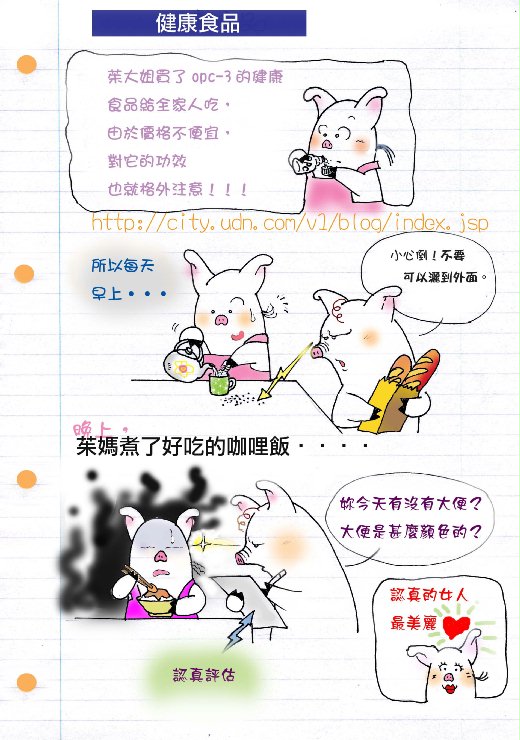 健康食品
茱大姐買了opc-3的健康
食品給全家人吃，
由於價格不便宜，
對它的功效
也就格外注意！！！
http://city.udn.com/v1/blog/index.jsp
所以每天
早上・・・
小心倒！不要
可以灑到外面。
晚上，
茱媽煮了好吃的咖哩飯．．．．
妳今天有沒有大便？
大便是甚麼顏色的？
認真評估
認真的女人
最美麗